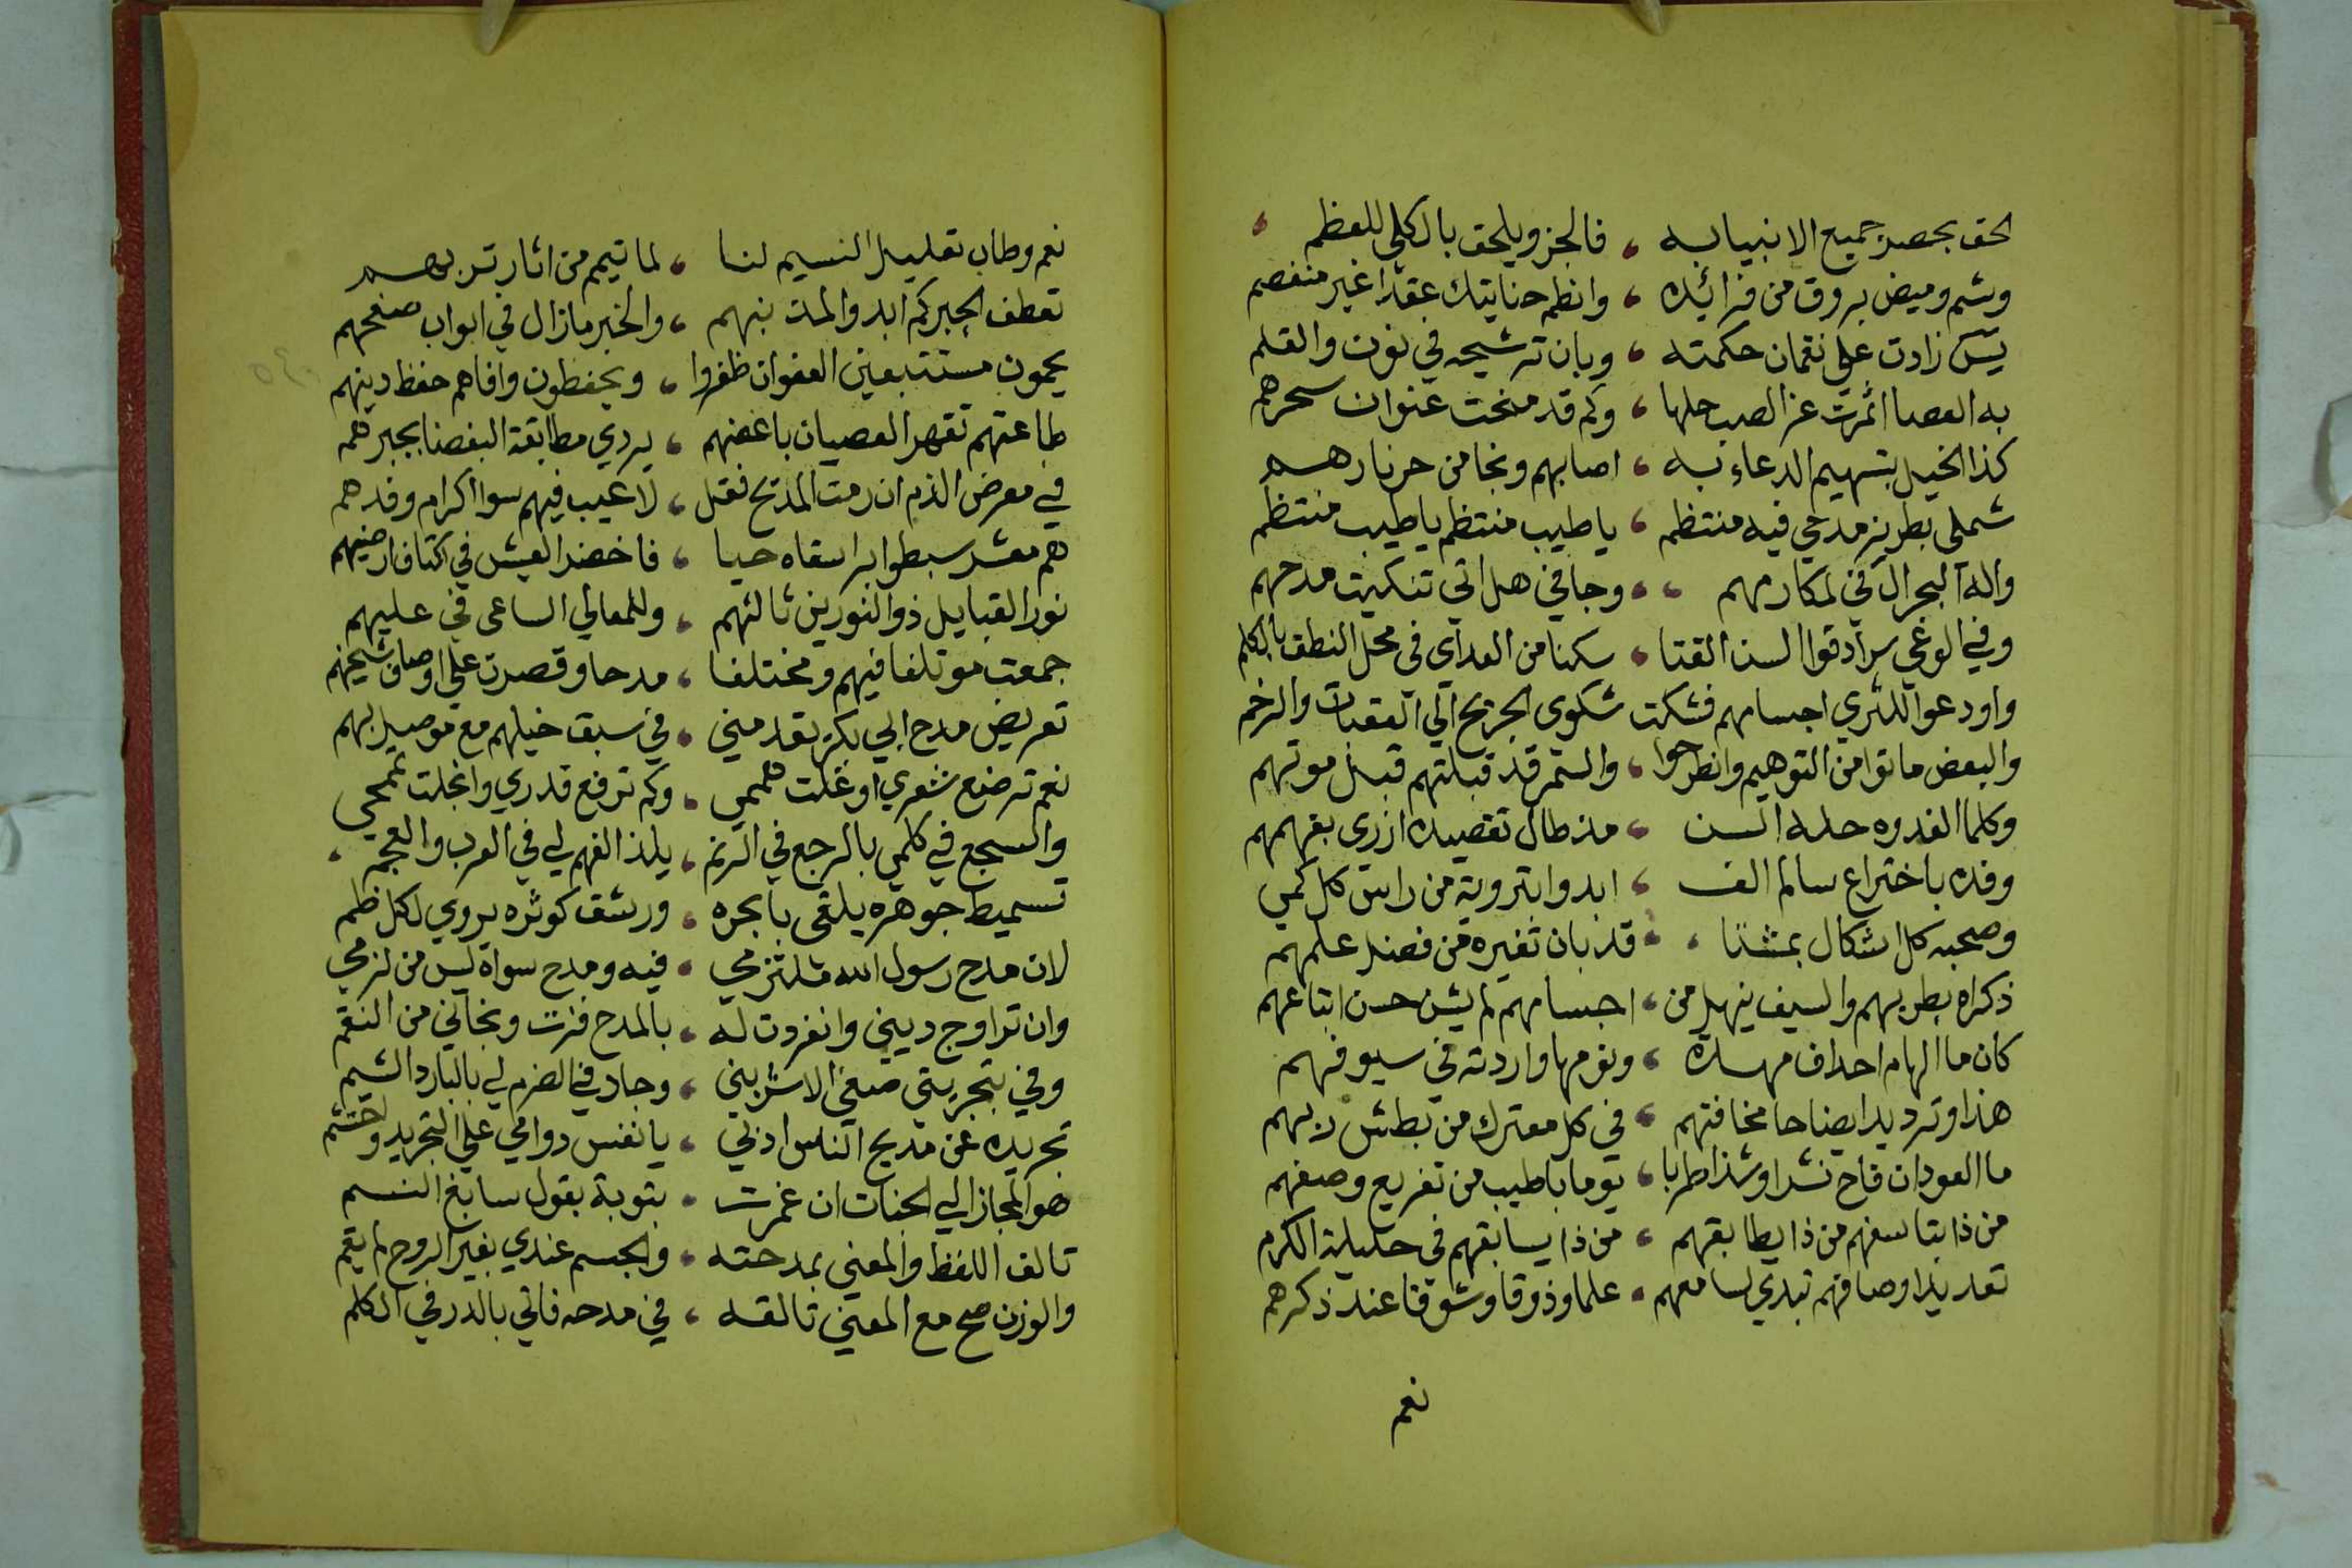 الحق بحصر جميع الانبيا به ، فالجزو يلحق بالكلي للعظم ،
وشم وميض بروق من فرائده ، وانظم حنايتك عقدا غير منفصم
يس زادت علي نقمان حكمته ، وبان ترشيحه في نون والقلم
به العصا اثمرت عز الصب حلها ، وكم قد منحت عنوان سحرهم
كذا الخيل بتسهيم الدعاء به ، اصابهم ونجا من حر نارهم
شملي بطريز مدحي فيه منتظم ، يا طيب منتظم يا طيب منتظم
واله البحر ال في لمكارمهم ، ، وجا في هل اتي تنكيت مدحهم
وفي الوغي سرادقوا السن القنا ، سكنا من العداي في محل النطق بالكلم
واودعوا للثري اجسامهم فشكت شكوى الجريح الي العقبان والرخم
والبعض ماتوا من التوهيم وانطرحوا ، والسمر قد قبلتهم قبل موتهم
وكلما الغدوه حله السن ، مذ طال تقصيده ازرى بفهمهم
وفده باختراع سالم الف ، ابدوا بتروية من راس كل كمي
وصحبه كل اشكال بمشتا ، ، قد بان تغيره من فضل علمهم
ذكراه يطربهم والسيف ينهل من ، اجسامهم لم يشن حسن اتباعهم
كان ما الهام احداف مهسده ، ونومها واردته في سيوفهم
هذا وترديد ايضاحا مخافتهم ، في كل معترك من بطش ربهم
ما العود ان فاح نشرا وشذا طربا ، يوما باطيب من تفريع وصفهم
من ذا بناسفهم من ذا يطابقهم ، من ذا يسابقهم في حليلة الكرم
تعديد اوصافهم تبدي لسامعهم ، علما وذوقا وشوقا عند ذكرهم
نعم
نعم وطاب تعليل النسيم لنا ، لما تيمم من اثار تربهم
تعطف الجبر كم ابدوا لمذنبهم ، والخير ما زال في ابواب صفحهم
يحمون مستتبعين العفو ان ظفروا ، ويحفظون وافاهم حفظ دينهم
طاعتهم تقهر العصيان باغضهم ، يردي مطابقة البغضا بجبرهم
في معرض الذم ان رمت المديح فقل ، لا عيب فيهم سوا اكرام وفدهم
هم معشر سبطوا برا سقاه حيا ، فاخضر العيش في اكناف ارضهم
نور القبايل ذو النورين ثالثهم ، وللمعالي الساعى في عليهم
جمعت موتلفا فيهم ومختلفا ، مدحا وقصرت علي اوصاف شيخهم
تعريض مدح ابي بكر يقدمني ، في سبق خيلهم مع موصيلهم
نعم ترضع شعري او غلت هممي ، وكم ترفع قدري وانجلت غممي
والسجع في كلمي بالرجع في الرنم ، يلذ الفهم لي في العرب والعجم ،
تسميط جوهره يلقى بابحره ، ورشف كوثره يروي لكل ظم
لان مدح رسول الله ملتزمي ، فيه ومدح سواه ليس من لزمي
وان تراوج ديني وانفردت له ، بالمدح فزت ونجاني من النقم
وفي بتجريتي صفي الاشربني ، وجاد في الضرم لي بالبارد الشيم
تجريده عن مديح الناس ادني ، يا نفس دوامي علي التجريد واحتشم
هو المجاز الي الجنات ان غمرت ، بتوبة بقول سابغ النسم
تالف اللفظ والمعني بمدحته ، والجسم عندي بغير الروح لم يقم
والوزن صح مع المعني تالفه ، في مدحه فاتي بالدر في الكلم